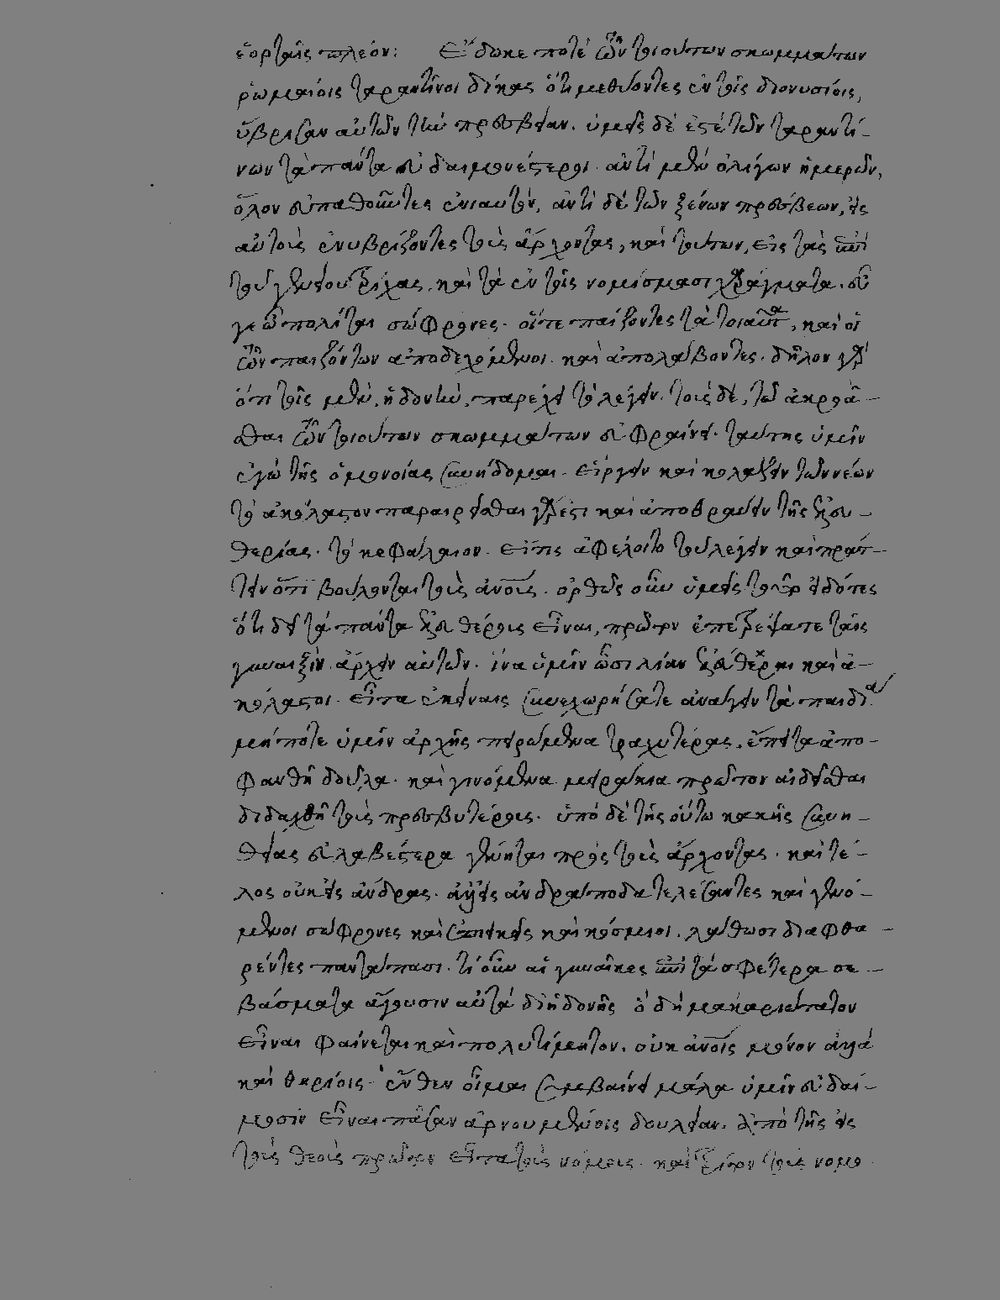 ἑορταῖς πλέον: Ἔδωκέ ποτε τῶν τοιούτων σκωμμάτων
ῥωμαίοις ταραντῖνοι δίκας ὅτι μεθύοντες ἐν τοῖς διονυσίοις,
ὕβρισαν αὐτῶν τὴν πρεσβείαν. ὑμεῖς δέ ἐστε τῶν ταραντί-
νων τὰ πάντα εὐδαιμονέστεροι. ἀντὶ μὲν ὀλίγων ἡμερῶν,
ὅλον εὐπαθοῦντες ἐνιαυτόν, ἀντὶ δὲ τῶν ξένων πρέσβεων, εἰς
αὐτοὺς ἐνυβρίζοντες τοὺς ἄρχοντας, καὶ τούτων, εἰς τὰς ἐπὶ
τοῦ γενείου τρίχας, καὶ τὰ ἐν τοῖς νομίσμασι χαράγματα. εὖ
γε ὦ πολῖται σώφρονες. οἵ τε παίζοντες τὰ τοιαῦτα, καὶ οἱ
τῶν παιζόντων ἀποδεχόμενοι. καὶ ἀπολαύοντες. δῆλον γὰρ
ὅτι τοῖς μὲν, ἡδονὴν, παρέχει τὸ λέγειν. τοὺς δὲ, τὸ ἀκροᾶ-
σθαι τῶν τοιούτων σκωμμάτων εὐφραίνει. ταύτης ὑμῖν
ἐγὼ τῆς ὁμονοίας συνήδομαι. εἴργειν καὶ κολάζειν τῶν νέων
τὸ ἀκόλαστον παραιρεῖσθαι γάρ ἐστι καὶ ἀποθραύειν τῆς ἐλευ-
θερίας. τὸ κεφάλαιον. εἴ τις ἀφέλοιτο τοῦ λέγειν καὶ πράτ-
τειν ὅτι βούλονται τοὺς ἀνοὺς. ὀρθῶς οὖν ὑμεῖς τοῦτο εἰδότες
ὅτι δεῖ τὰ πάντα ἐλευθέρους εἶναι, πρῶτον ἐπετρέψατε ταῖς
γυναιξὶν ἄρχειν αὐτῶν. ἵνα ὑμῖν ὦσι λίαν ἐλεύθεραι καὶ ἀ-
κόλαστοι. εἶτα ἐκείναις συνεχωρήσατε ἀνάγειν τὰ παιδία
μή ποτε ὑμῖν ἀρχῆς πειρώμενα τραχυτέρας, ἔπειτα ἀπο-
φανθῇ δοῦλα. καὶ γινόμενα μειράκια πρῶτον αἰδεῖσθαι
διδαχθῇ τοὺς πρεσβυτέρους. ὑπὸ δὲ τῆς οὕτω κακῆς συνη-
θείας εὐλαβέστερα γένηται πρὸς τοὺς ἄρχοντας. καὶ τέ-
λος οὐκ εἰς ἄνδρας. ἀλλ' εἰς ἀνδράποδα τελέσαντες καὶ γενό-
μενοι σώφρονες καὶ ἐπιεικεῖς καὶ κόσμιοι. λάθωσι διαφθα-
ρέντες παντάπασι. τί οὖν αἱ γυναῖκες ἐπὶ τὰ σφέτερα σε-
βάσματα ἄγουσιν αὐτὰ δι' ἡδονῆς ὃ δὴ μακαριώτατον
εἶναι φαίνεται καὶ πολυτίμητον. οὐκ ἀνοις μόνον ἀλλὰ
καὶ θηρίοις. ἔνθεν οἶμαι συμβαίνει μάλα ὑμῖν εὐδαί-
μοσιν εἶναι πᾶσαν ἀρνουμένοις δουλείαν. ἀπὸ τῆς εἰς
τοὺς θεοὺς πρῶτον εἶτα τοὺς νόμους. καὶ τρίτον τοὺς νομο